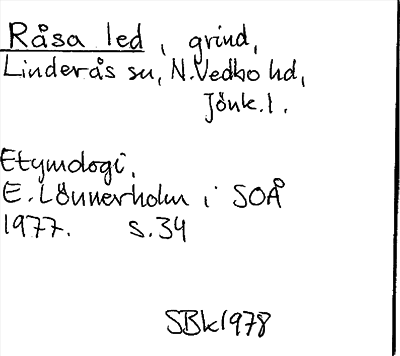 Råsa led, grind,
Linderås sn, N.Vedbo hd,
Jönk.l.
Etymologi,
E. Lönnerholm i SOÅ
1977. s.34
SBk1978